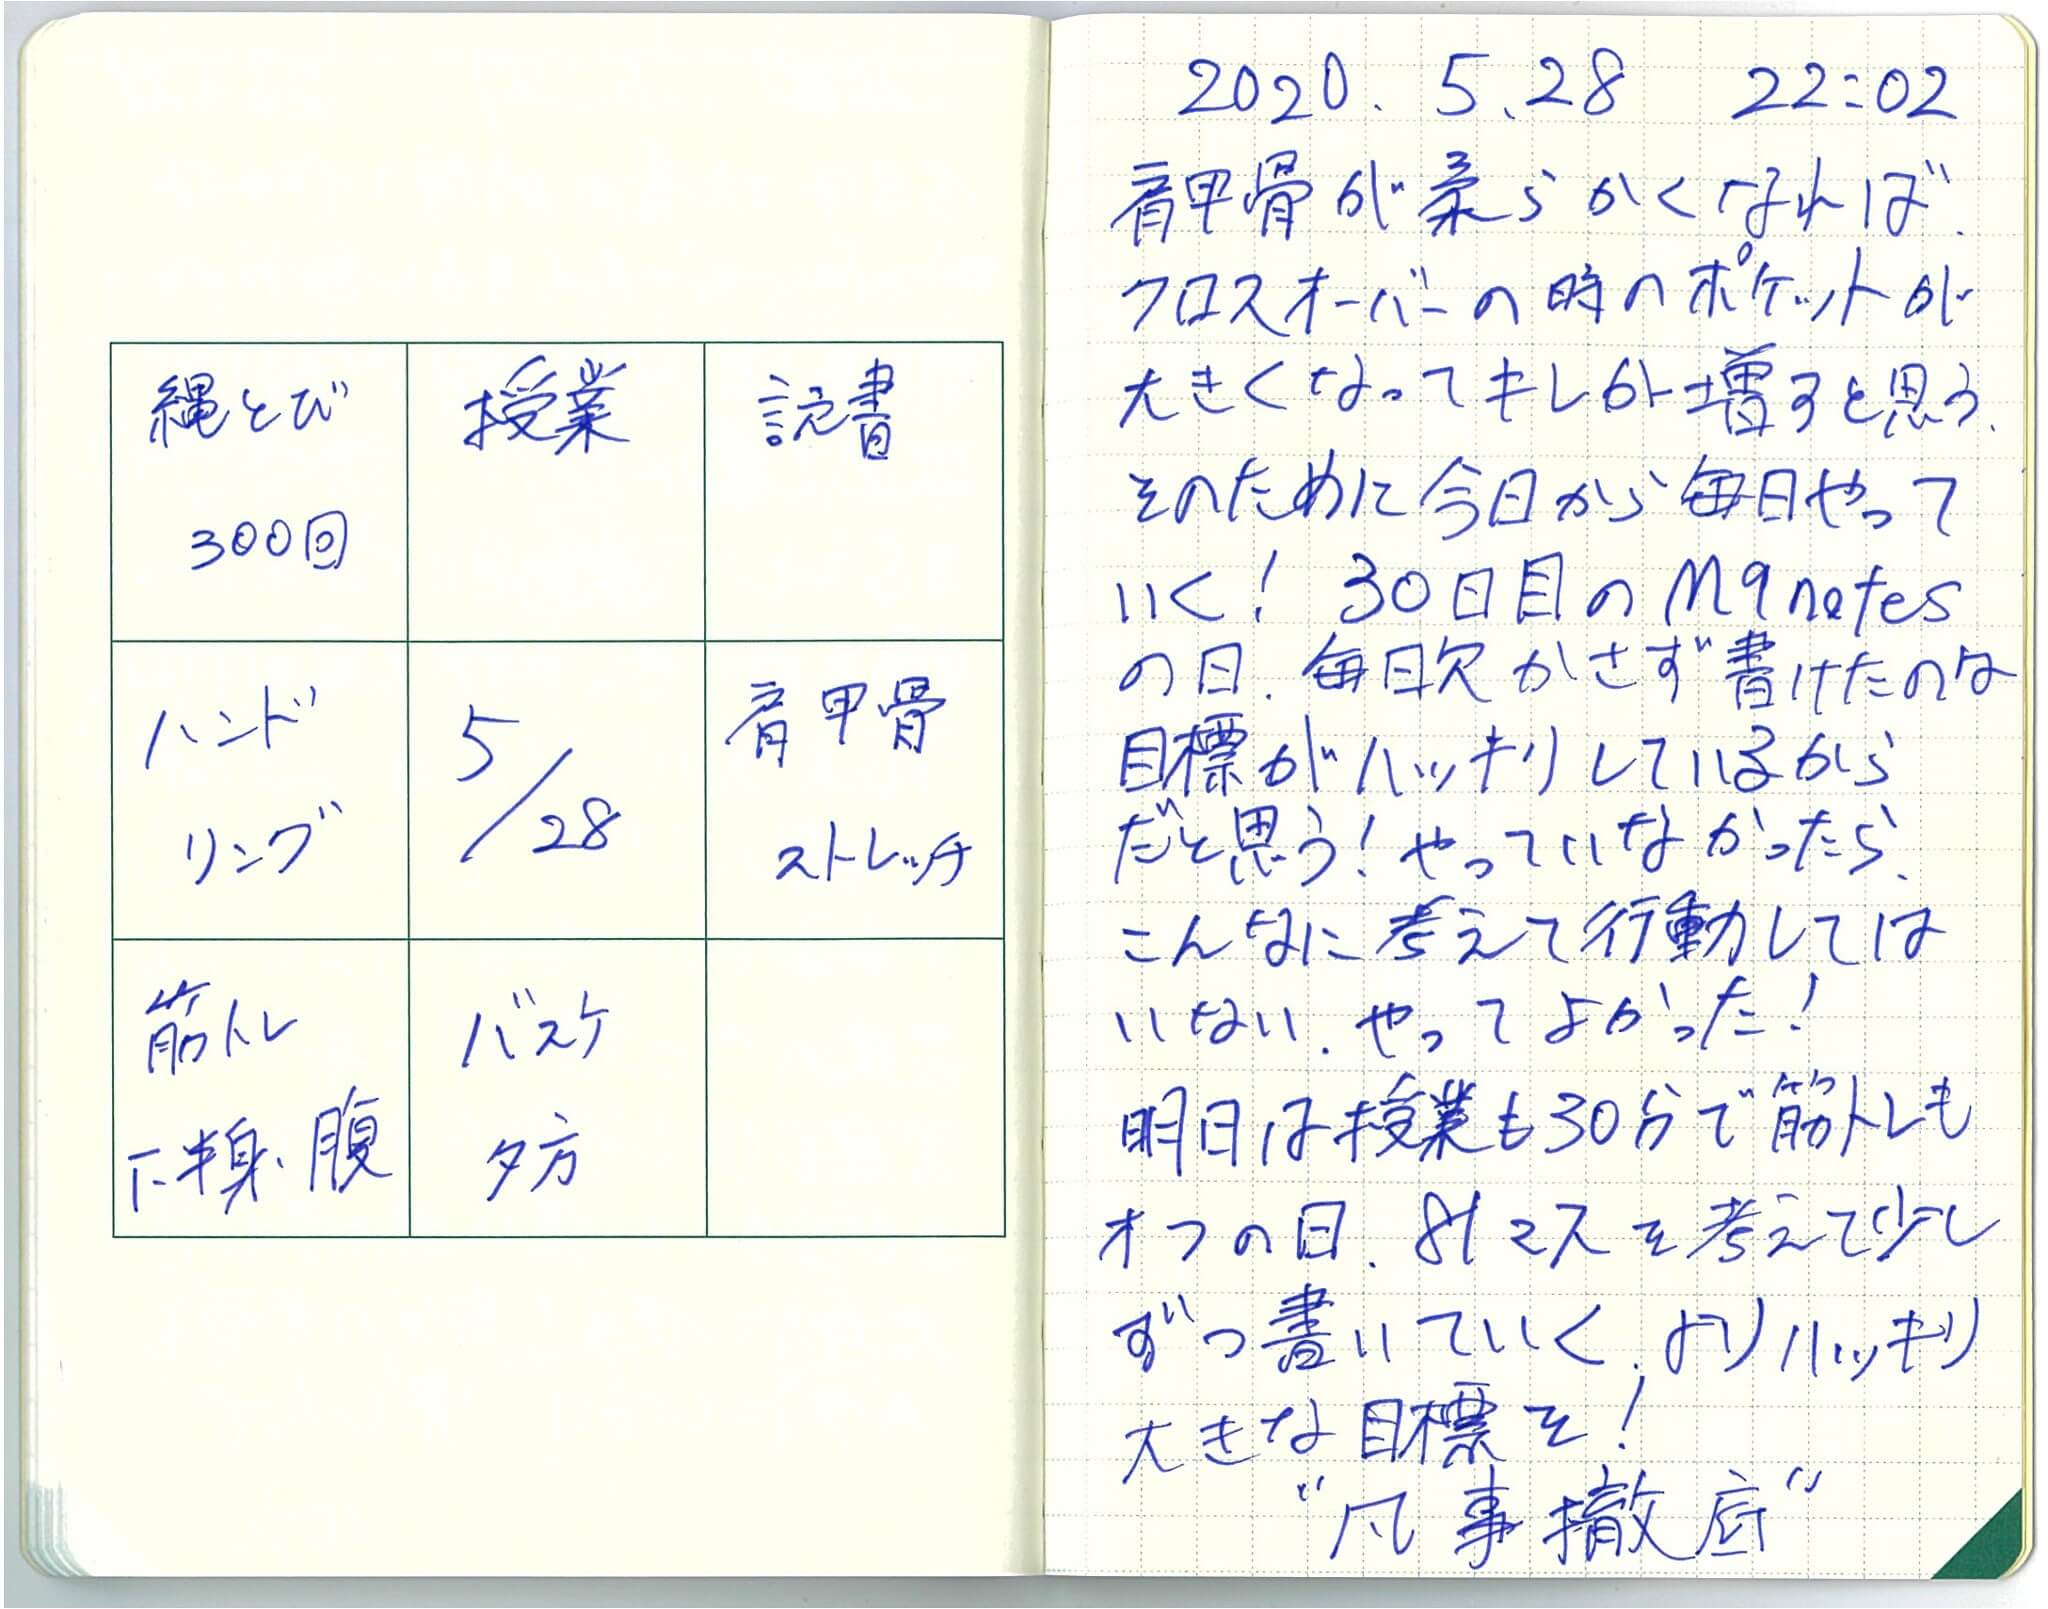 縄とび
300回
授業
読書
ハンド
リング
5/28
肩甲骨
ストレッチ
筋トレ
下半身、腹
バスケ
夕方
2020. 5.28 22:02
肩甲骨が柔らかくなれば、
クロスオーバーの時のポケットが
大きくなってキレが増すと思う。
そのために今日から毎日やって
いく! 30日目のM9notes
の日。毎日欠かさず書けたのは
目標がハッキリしているから
だと思う! やっていなかったら、
こんなに考えて行動しては
いない。やってよかった!
明日は授業も30分で筋トレも
オフの日。81マスを考えて少し
ずつ書いていく。よりハッキリ
大きな目標を!
"凡事徹底"